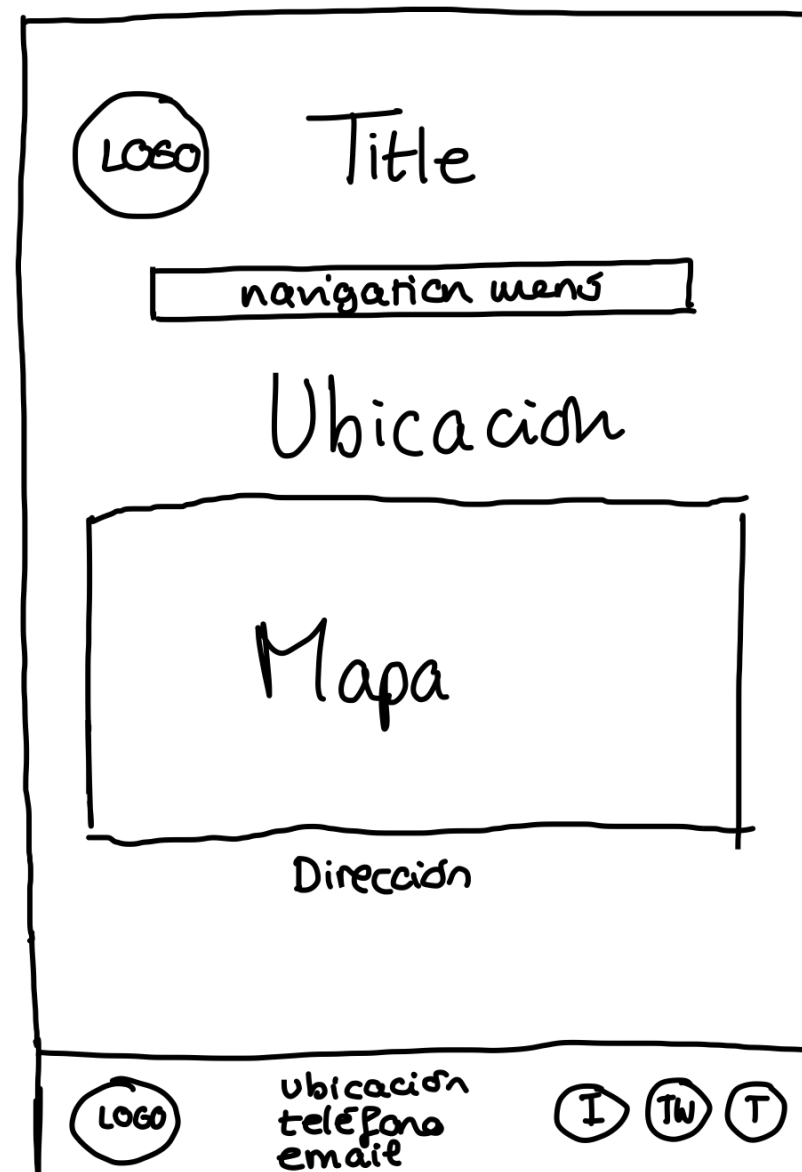 LOGO
Title
navigation menú
Ubicación
Mapa
Dirección
LOGO
ubicación
teléfono
email
I
TW
T